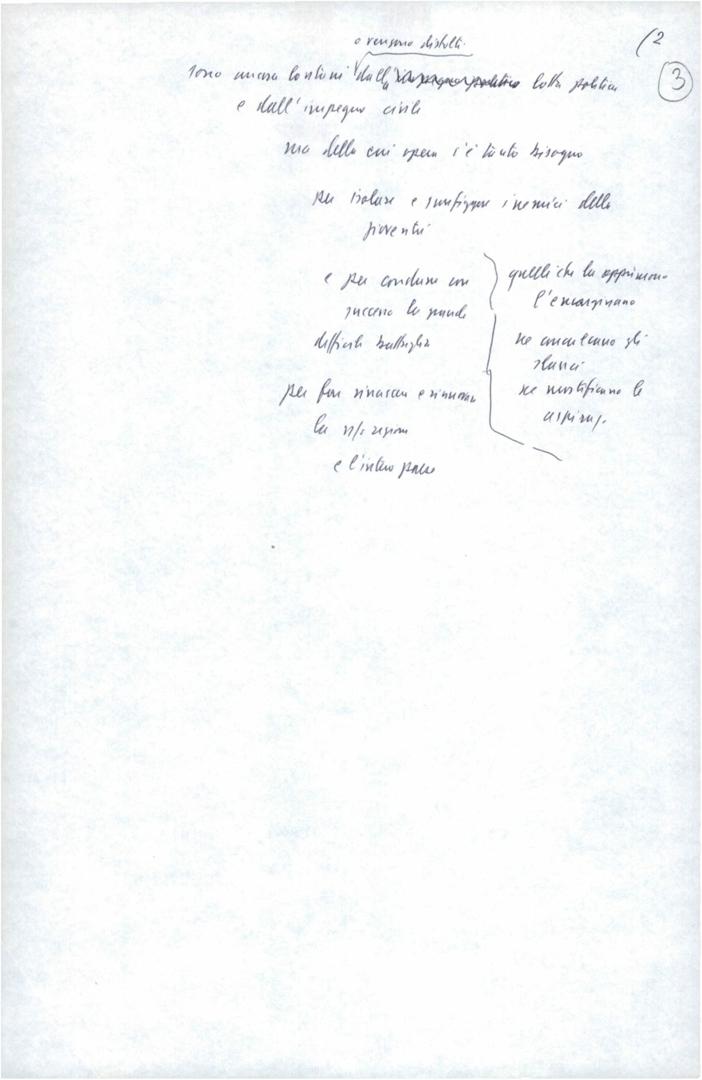 (2
3
o vengono distolti
sono ancora lontani dalla lotta politica
e dall'impegno civile
ma della cui opera c'è tanto bisogno
per isolare e sconfiggere i nemici della
gioventù
e per condurre con
successo la grande
difficile battaglia
per far rinascere e rinnovare
la
e l'intero paese
quelli che la opprimono
l'emarginano
ne conculcano gli
slanci
ne mortificano le
aspiraz.